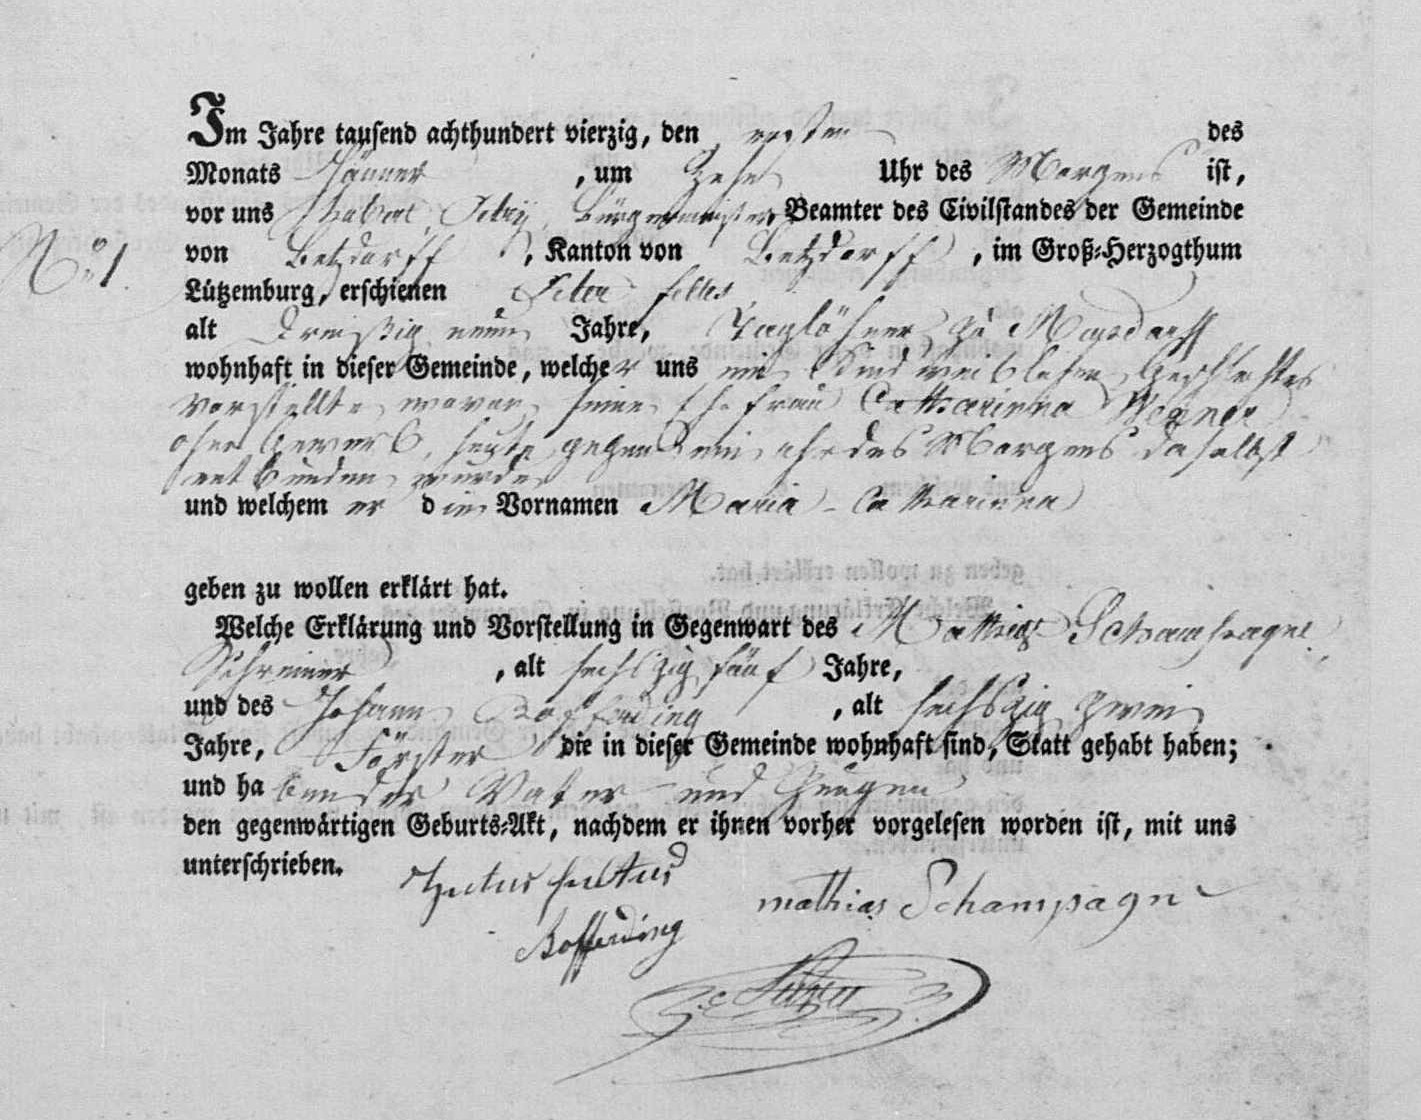 Im Jahre tausend achthundert vierzig, den ersten des
Monats Jänner , um Zehn Uhr des Morgens ist,
vor uns Hubert Bürgermeister, Beamter des Civilstandes der Gemeinde
No 1.
von Betzdorff , Kanton von Betzdorff , im Groß-Herzogthum
Lützemburg, erschienen Peter
alt Dreißig neun Jahre, Taglöhner zu
wohnhaft in dieser Gemeinde, welcher uns ein Kind weiblichen Geschlechtes
vorstellte, wovon seine Ehefrau Catharinna Wagner
ohne Gewerb, heute gegen ein uhr des Morgens daselbst
entbunden wurde
und welchem er die Vornamen Maria-Catharinna
geben zu wollen erklärt hat.
Welche Erklärung und Vorstellung in Gegenwart des Mathias Schampagne
Schreiner , alt sechszig fünf Jahre,
und des Johann Bofferding , alt sechszig zwei
Jahre, Förster die in dieser Gemeinde wohnhaft sind, Statt gehabt haben;
und haben der Vater und Zeugen
den gegenwärtigen Geburts-Akt, nachdem er ihnen vorher vorgelesen worden ist, mit uns
unterschrieben.
mathias Schampagne
Bofferding